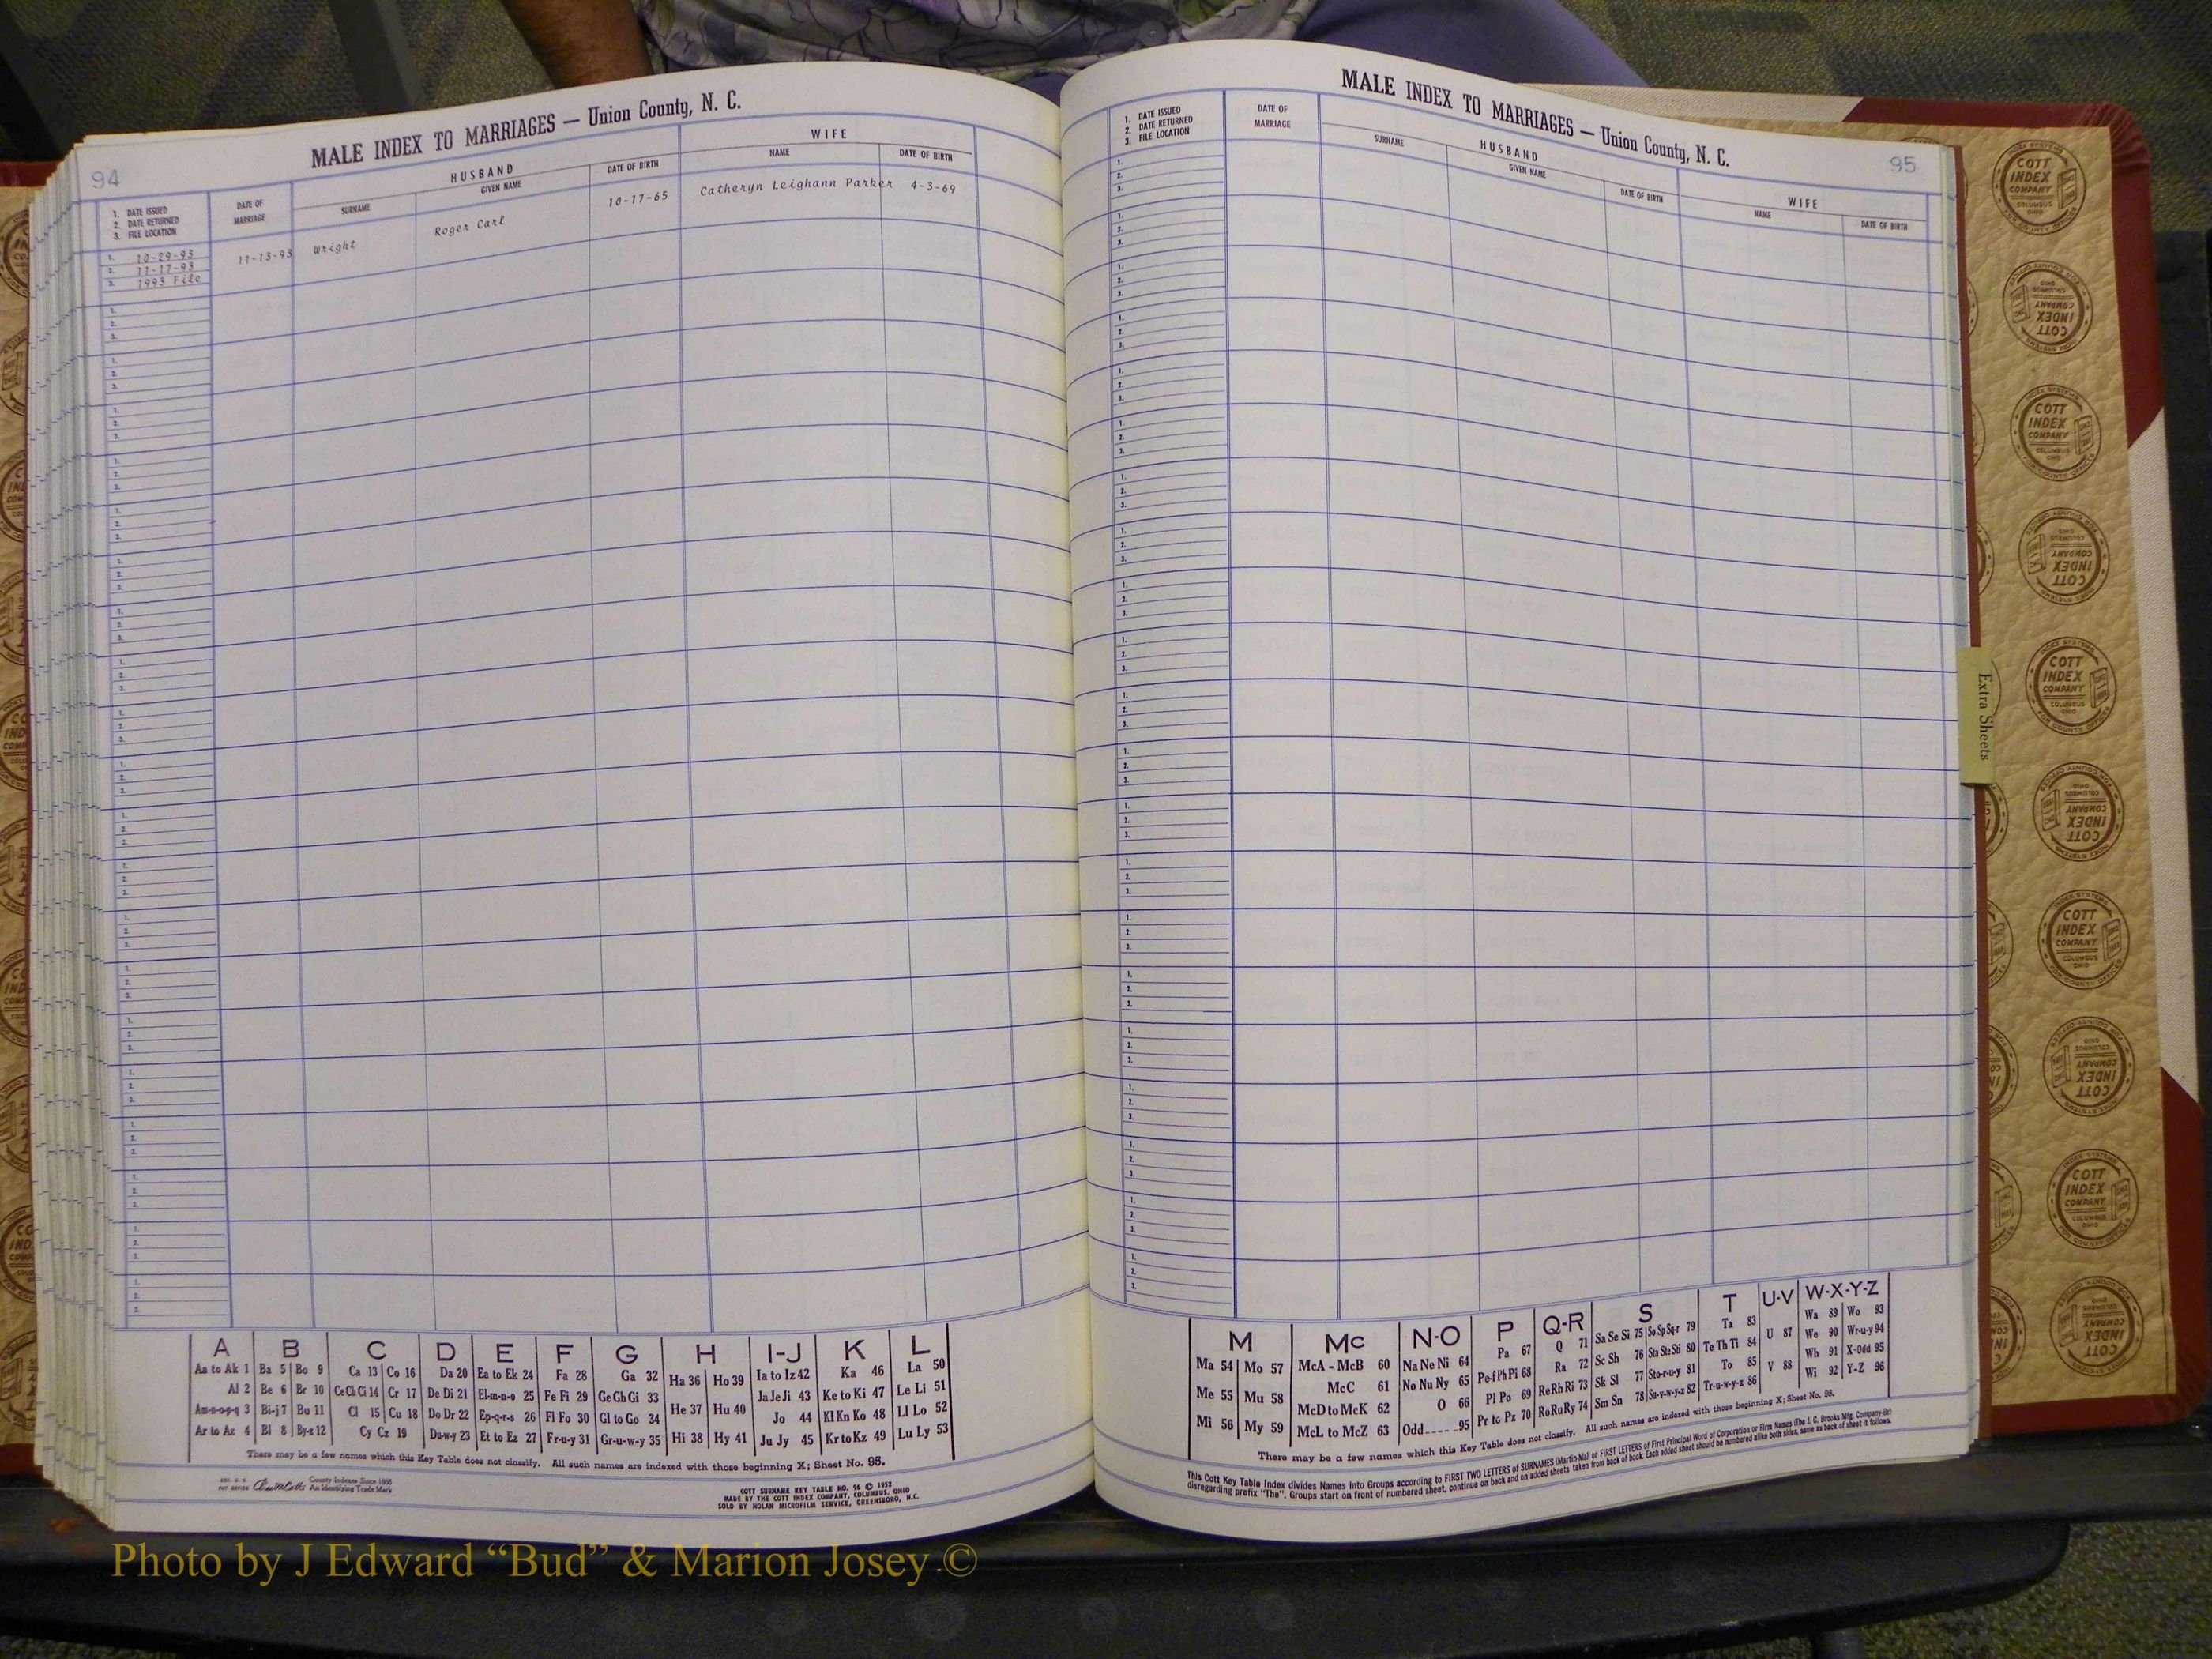 94
MALE INDEX TO MARRIAGES — Union County, N. C.
1. DATE ISSUED
2. DATE RETURNED
3. FILE LOCATION
DATE OF MARRIAGE
HUSBAND
SURNAME
GIVEN NAME
DATE OF BIRTH
WIFE
NAME
DATE OF BIRTH
1. 10-29-93
2. 11-17-93
3. 1993 File
11-13-93 Wright Roger Carl 10-17-65 Catheryn Leighann Parker 4-3-69
A B C D E F G H I-J K L
Aa to Ak 1 Ba 5 Bo 9 Ca 13 Co 16 Da 20 Ea to Ek 24 Fa 28 Ga 32 Ha 36 Ho 39 Ia to Iz 42 Ka 46 La 50
Al 2 Be 6 Br 10 Ce Ch Ci 14 Cr 17 De Di 21 El-m-n-o 25 Fe Fi 29 Ge Gh Gi 33 He 37 Hu 40 Ja Je Ji 43 Ke to Ki 47 Le Li 51
Am-n-o-p-q 3 Bi-j 7 Bu 11 Cl 15 Cu 18 Do Dr 22 Ep-q-r-s 26 Fl Fo 30 Gl to Go 34 Jo 44 Kl Kn Ko 48 Ll Lo 52
Ar to Az 4 Bl 8 By-z 12 Cy Cz 19 Du-w-y 23 Et to Ez 27 Fr-u-y 31 Gr-u-w-y 35 Hi 38 Hy 41 Ju Jy 45 Kr to Kz 49 Lu Ly 53
There may be a few names which this Key Table does not classify. All such names are indexed with those beginning X; Sheet No. 95.
County Indexes Since 1888
An Identifying Trade Mark
COTT SURNAME KEY TABLE NO. 96 © 1952
MADE BY THE COTT INDEX COMPANY, COLUMBUS, OHIO
SOLD BY NOLAN MICROFILM SERVICE, GREENSBORO, N.C.
MALE INDEX TO MARRIAGES — Union County, N. C.
95
1. DATE ISSUED
2. DATE RETURNED
3. FILE LOCATION
DATE OF MARRIAGE
HUSBAND
SURNAME
GIVEN NAME
DATE OF BIRTH
WIFE
NAME
DATE OF BIRTH
M Mc N-O P Q-R S T U-V W-X-Y-Z
Ma 54 Mo 57 McA - McB 60 Na Ne Ni 64 Pa 67 Q 71 Sa Se Si 75 So Sp Sq-r 79 Ta 83 U 87 Wa 89 Wo 93
Me 55 Mu 58 McC 61 No Nu Ny 65 Pe-f Ph Pi 68 Ra 72 Sc Sh 76 Sta Ste Sti 80 Te Th Ti 84 We 90 Wr-u-y 94
McD to McK 62 O 66 Pl Po 69 Re Rh Ri 73 Sk Sl 77 Sto-r-u-y 81 To 85 V 88 Wh 91 X-Odd 95
Mi 56 My 59 McL to McZ 63 Odd 95 Pr to Pz 70 Ro Ru Ry 74 Sm Sn 78 Su-v-w-y-z 82 Tr-u-w-y-z 86 Wi 92 Y-Z 96
There may be a few names which this Key Table does not classify. All such names are indexed with those beginning X; Sheet No. 95.
This Cott Key Table Index divides Names Into Groups according to FIRST TWO LETTERS of SURNAMES (Martin-Ma) or FIRST LETTERS of First Principal Word of Corporation or Firm Names (The J. C. Brooks Mfg. Company-Br)
disregarding prefix "The". Groups start on front of numbered sheet, continue on back and on added sheets taken from back of book. Each added sheet should be numbered alike both sides, same as back of sheet it follows.
Extra Sheets
COTT INDEX COMPANY
COLUMBUS OHIO
INDEX SYSTEMS
FOR COUNTY OFFICES
Photo by J Edward “Bud” & Marion Josey ©